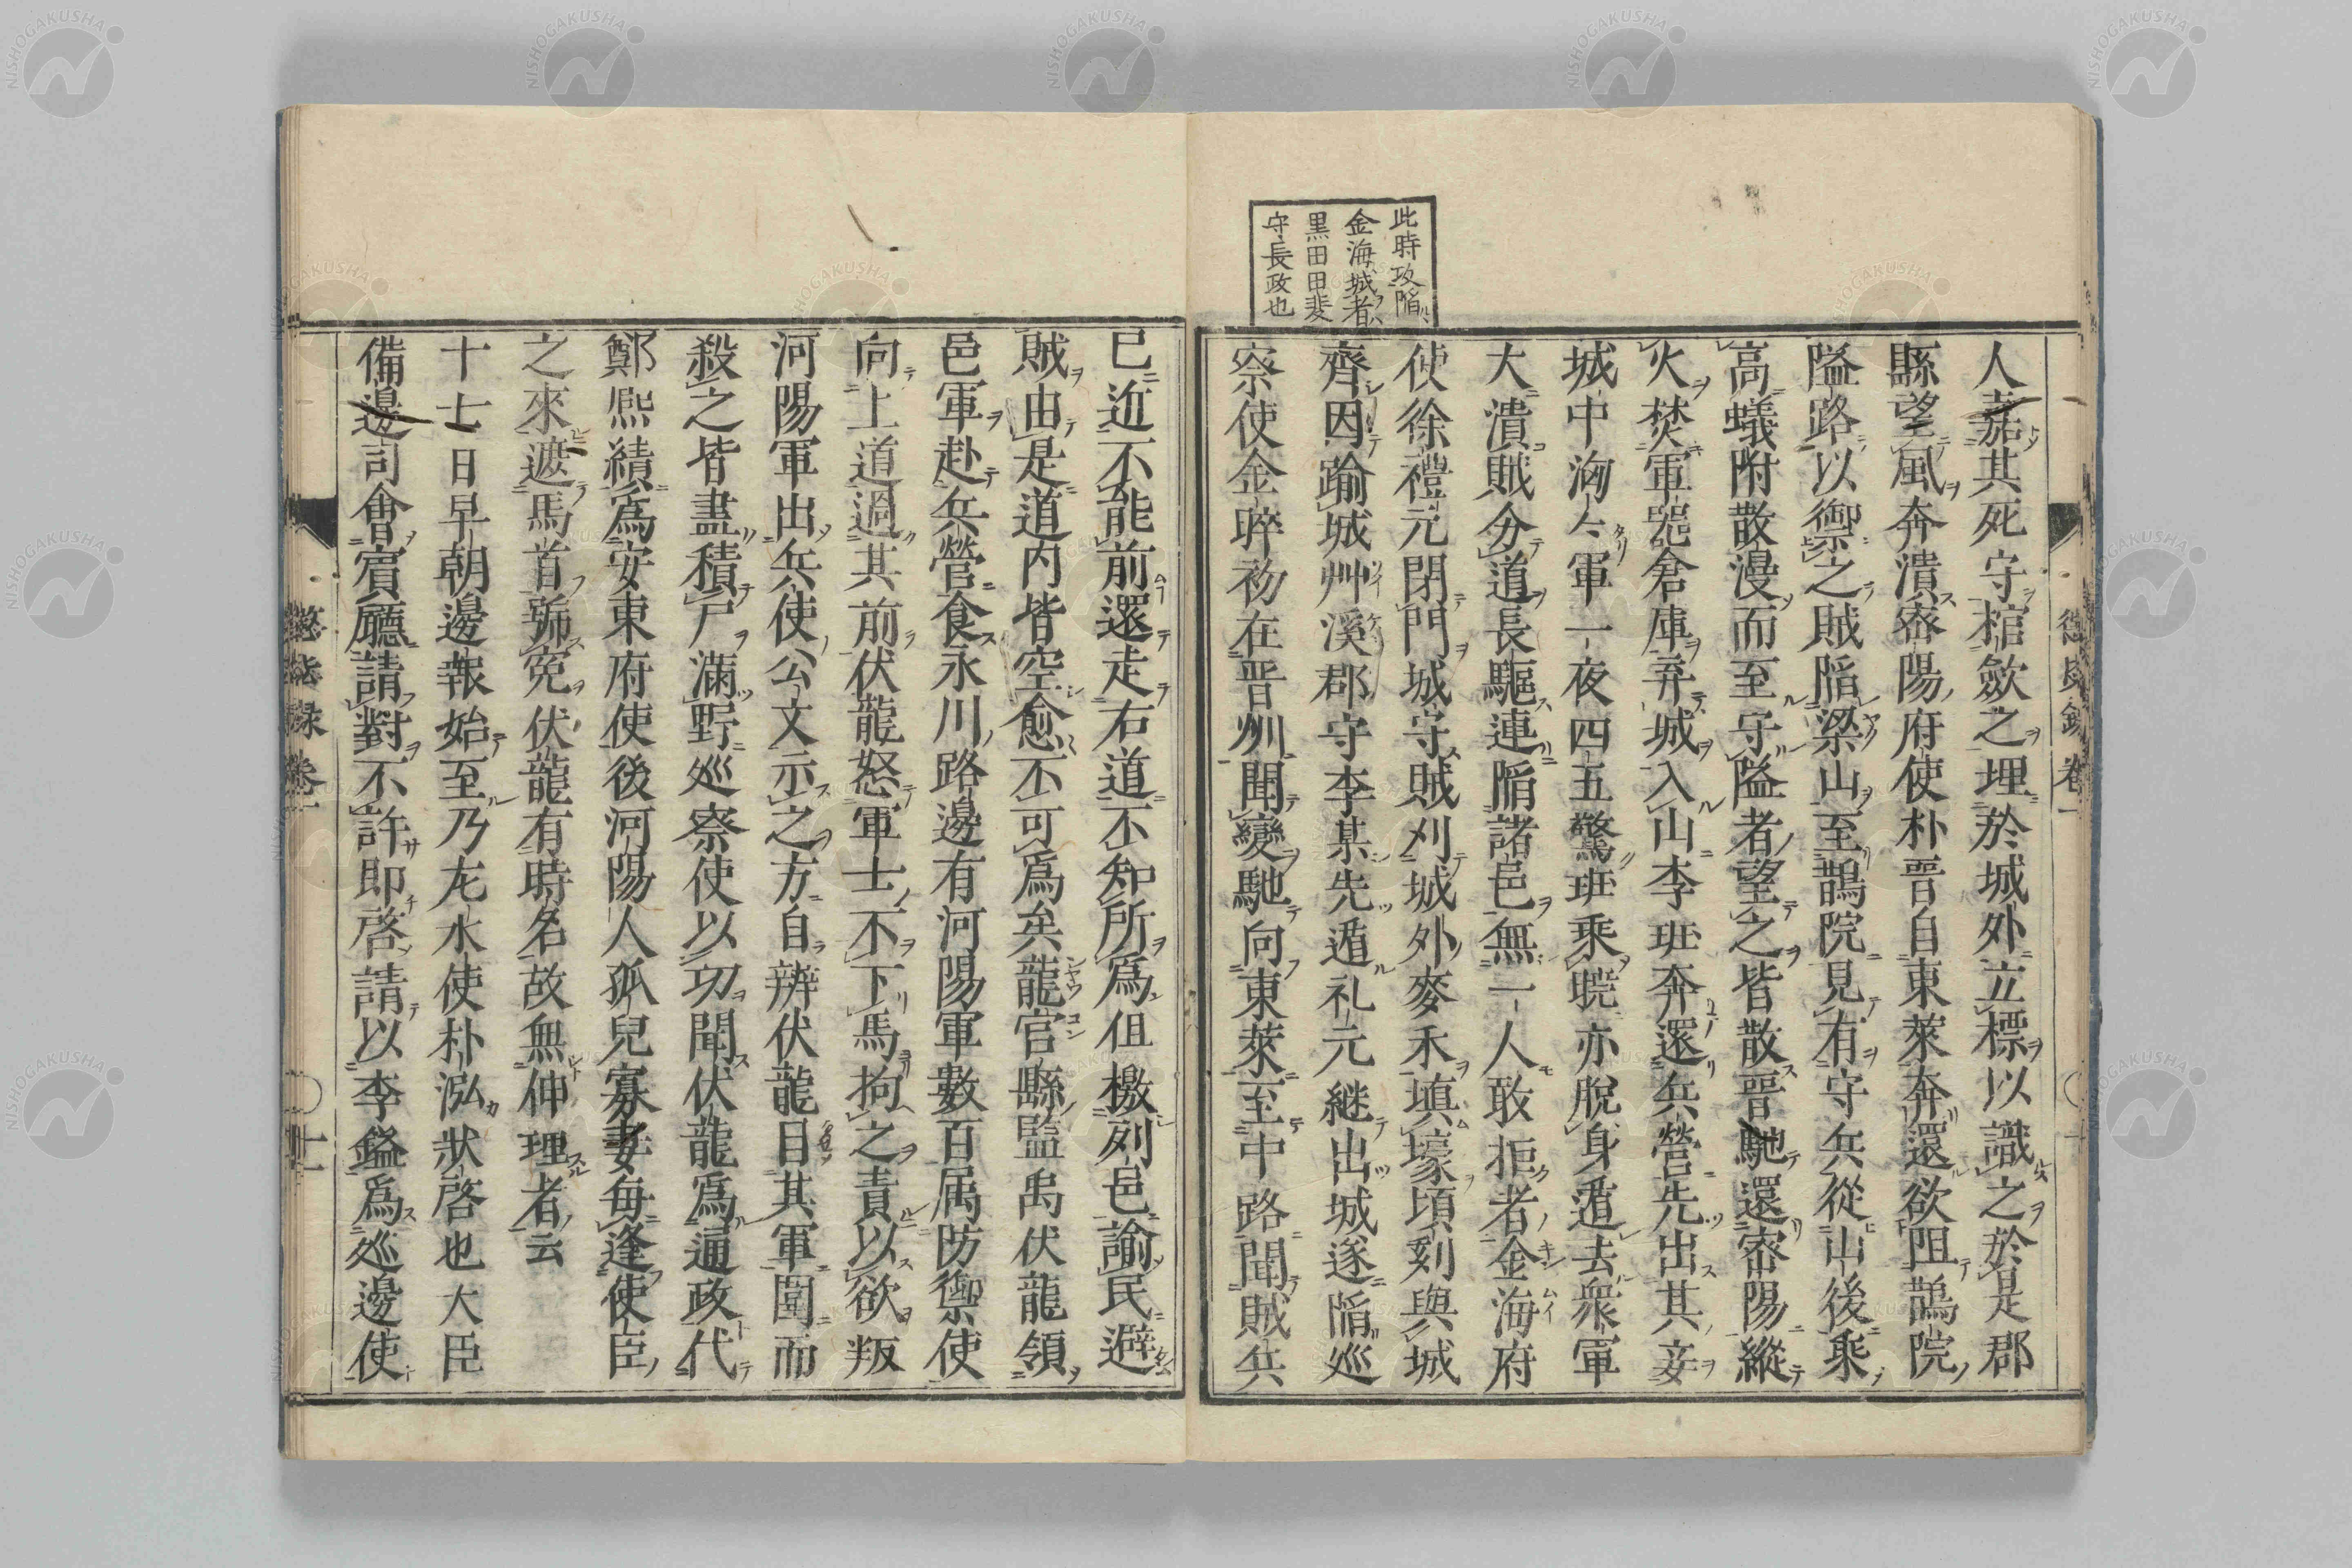 此時攻陷
金海城者
黒田甲斐
守長政也
人嘉其死守棺斂之埋於城外立標以識之於是郡
縣望風奔潰密陽府使朴晋自東萊奔還欲阻鵲院
隘路以禦之賊陷梁山至鵲院見有守兵從山後乘
高蟻附散漫而至守隘者望之皆散晋馳還密陽縱
火焚軍器倉庫弃城入山李珏奔還兵營先出其妾
城中洶々軍一夜四五驚珏乘曉亦脫身遁去衆軍
大潰賊分道長驅連陷諸邑無一人敢拒者金海府
使徐禮元閉門城守賊刈城外麥禾填壕頃刻與城
齊因踰城艸溪郡守李某先遁礼元継出城遂陷巡
察使金睟初在晋州聞變馳向東萊至中路聞賊兵
已近不能前還走右道不知所爲但檄列邑諭民避
賊由是道內皆空愈不可爲矣龍宮縣監禹伏龍領
邑軍赴兵營食永川路邊有河陽軍數百属防禦使
向上道過其前伏龍怒軍士不下馬拘之責以欲叛
河陽軍出兵使公文示之方自辨伏龍目其軍圍而
殺之皆盡積尸滿野巡察使以功聞伏龍爲通政代
鄭熈績爲安東府使後河陽人孤兒寡妻每逢使臣
之來遮馬首號寃伏龍有時名故無伸理者云
十七日早朝邊報始至乃左水使朴泓狀啓也大臣
備邊司會賓廳請對不許即啓請以李鎰爲巡邊使
懲毖録卷一
懲毖録卷一
十一